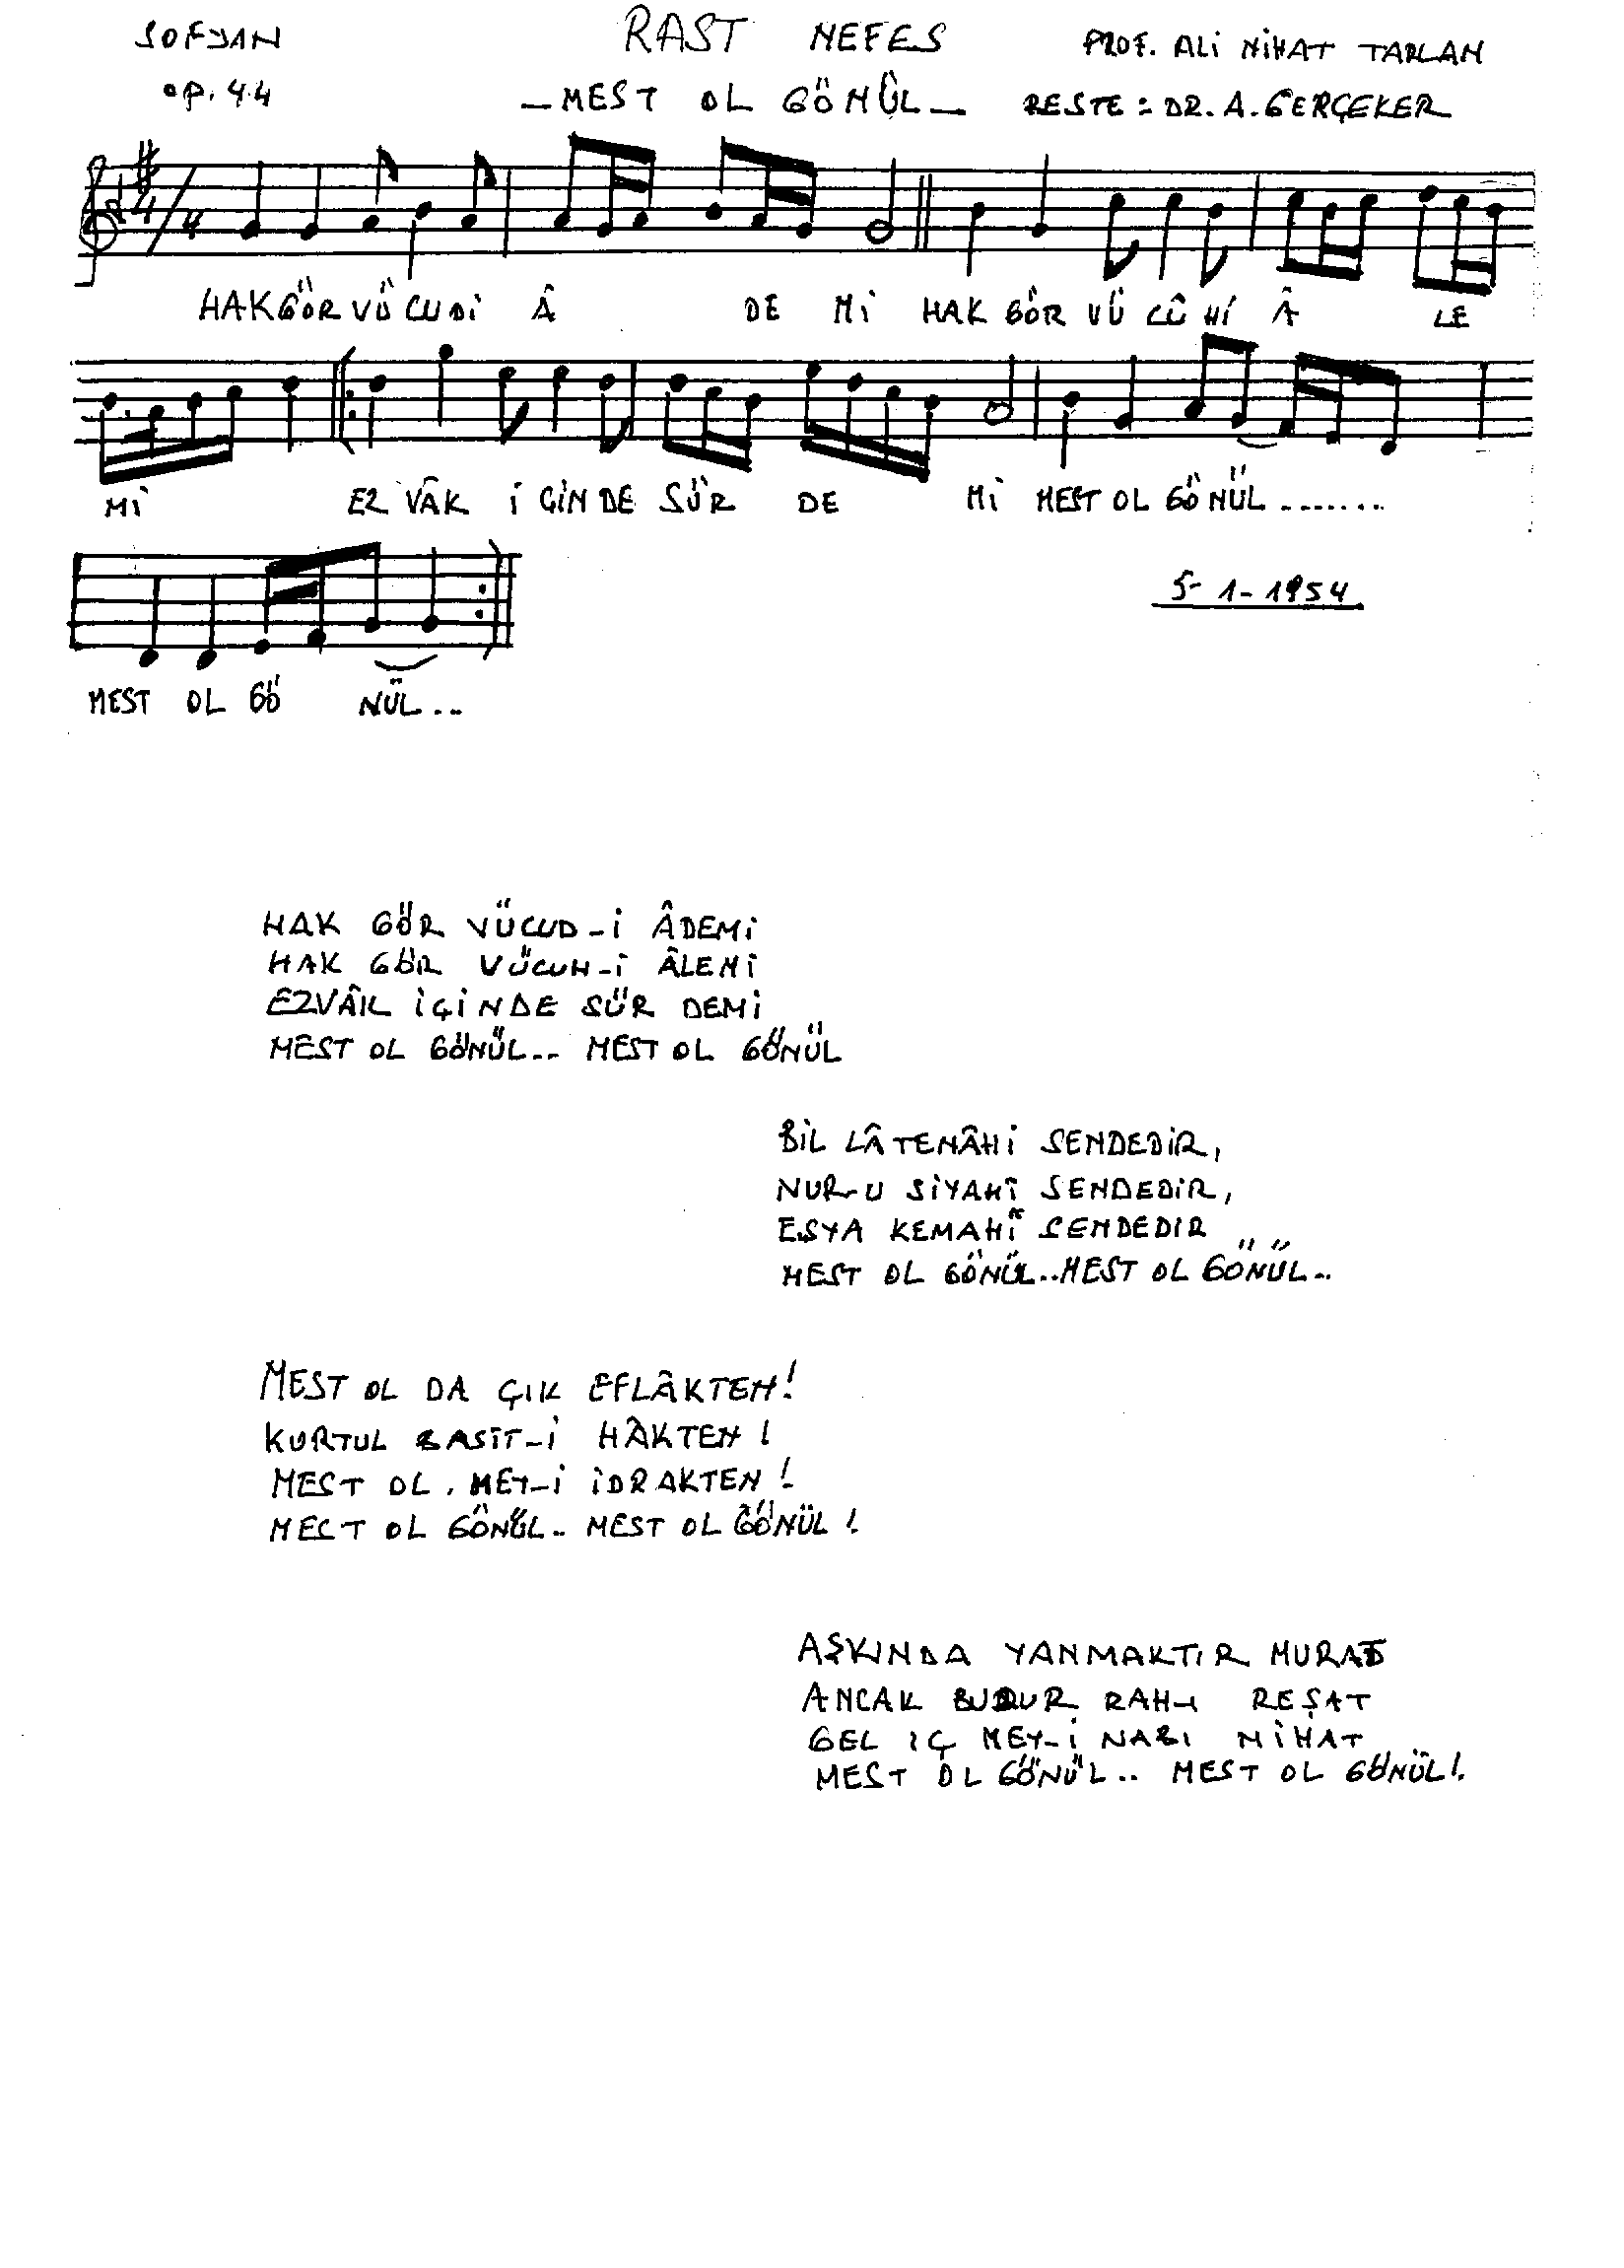 SOFYAN RAST NEFES PROF. ALİ NİHAT TARLAN
op. 44 — MEST OL GÖNÜL — BESTE : DR. A. GERÇEKER
4 4
HAK GÖR VÜ CU Dİ Â DE Mİ HAK GÖR VÜ CÛ Hİ Â LE
Mİ EZ VÂK İ ÇİN DE SÜR DE Mİ MEST OL GÖ NÜL ........
MEST OL GÖ NÜL...
5-1-1954
HAK GÖR VÜCUD-İ ÂDEMİ
HAK GÖR VÜCUH-İ ÂLEMİ
EZVÂK İÇİNDE SÜR DEMİ
MEST OL GÖNÜL.. MEST OL GÖNÜL
BİL LÂTENÂHİ SENDEDİR,
NUR-U SİYAHÎ SENDEDİR,
EŞYA KEMAHÎ SENDEDIR
MEST OL GÖNÜL..MEST OL GÖNÜL..
MEST OL DA ÇIK EFLÂKTEN!
KURTUL BASÎT-İ HÂKTEN!
MEST OL, MEY-İ İDRAKTEN!
MEST OL GÖNÜL.. MEST OL GÖNÜL!
AŞKINDA YANMAKTIR MURAD
ANCAK BUDUR RAH-I REŞAT
GEL IÇ MEY-İ NABI NİHAT
MEST OL GÖNÜL.. MEST OL GÖNÜL!.